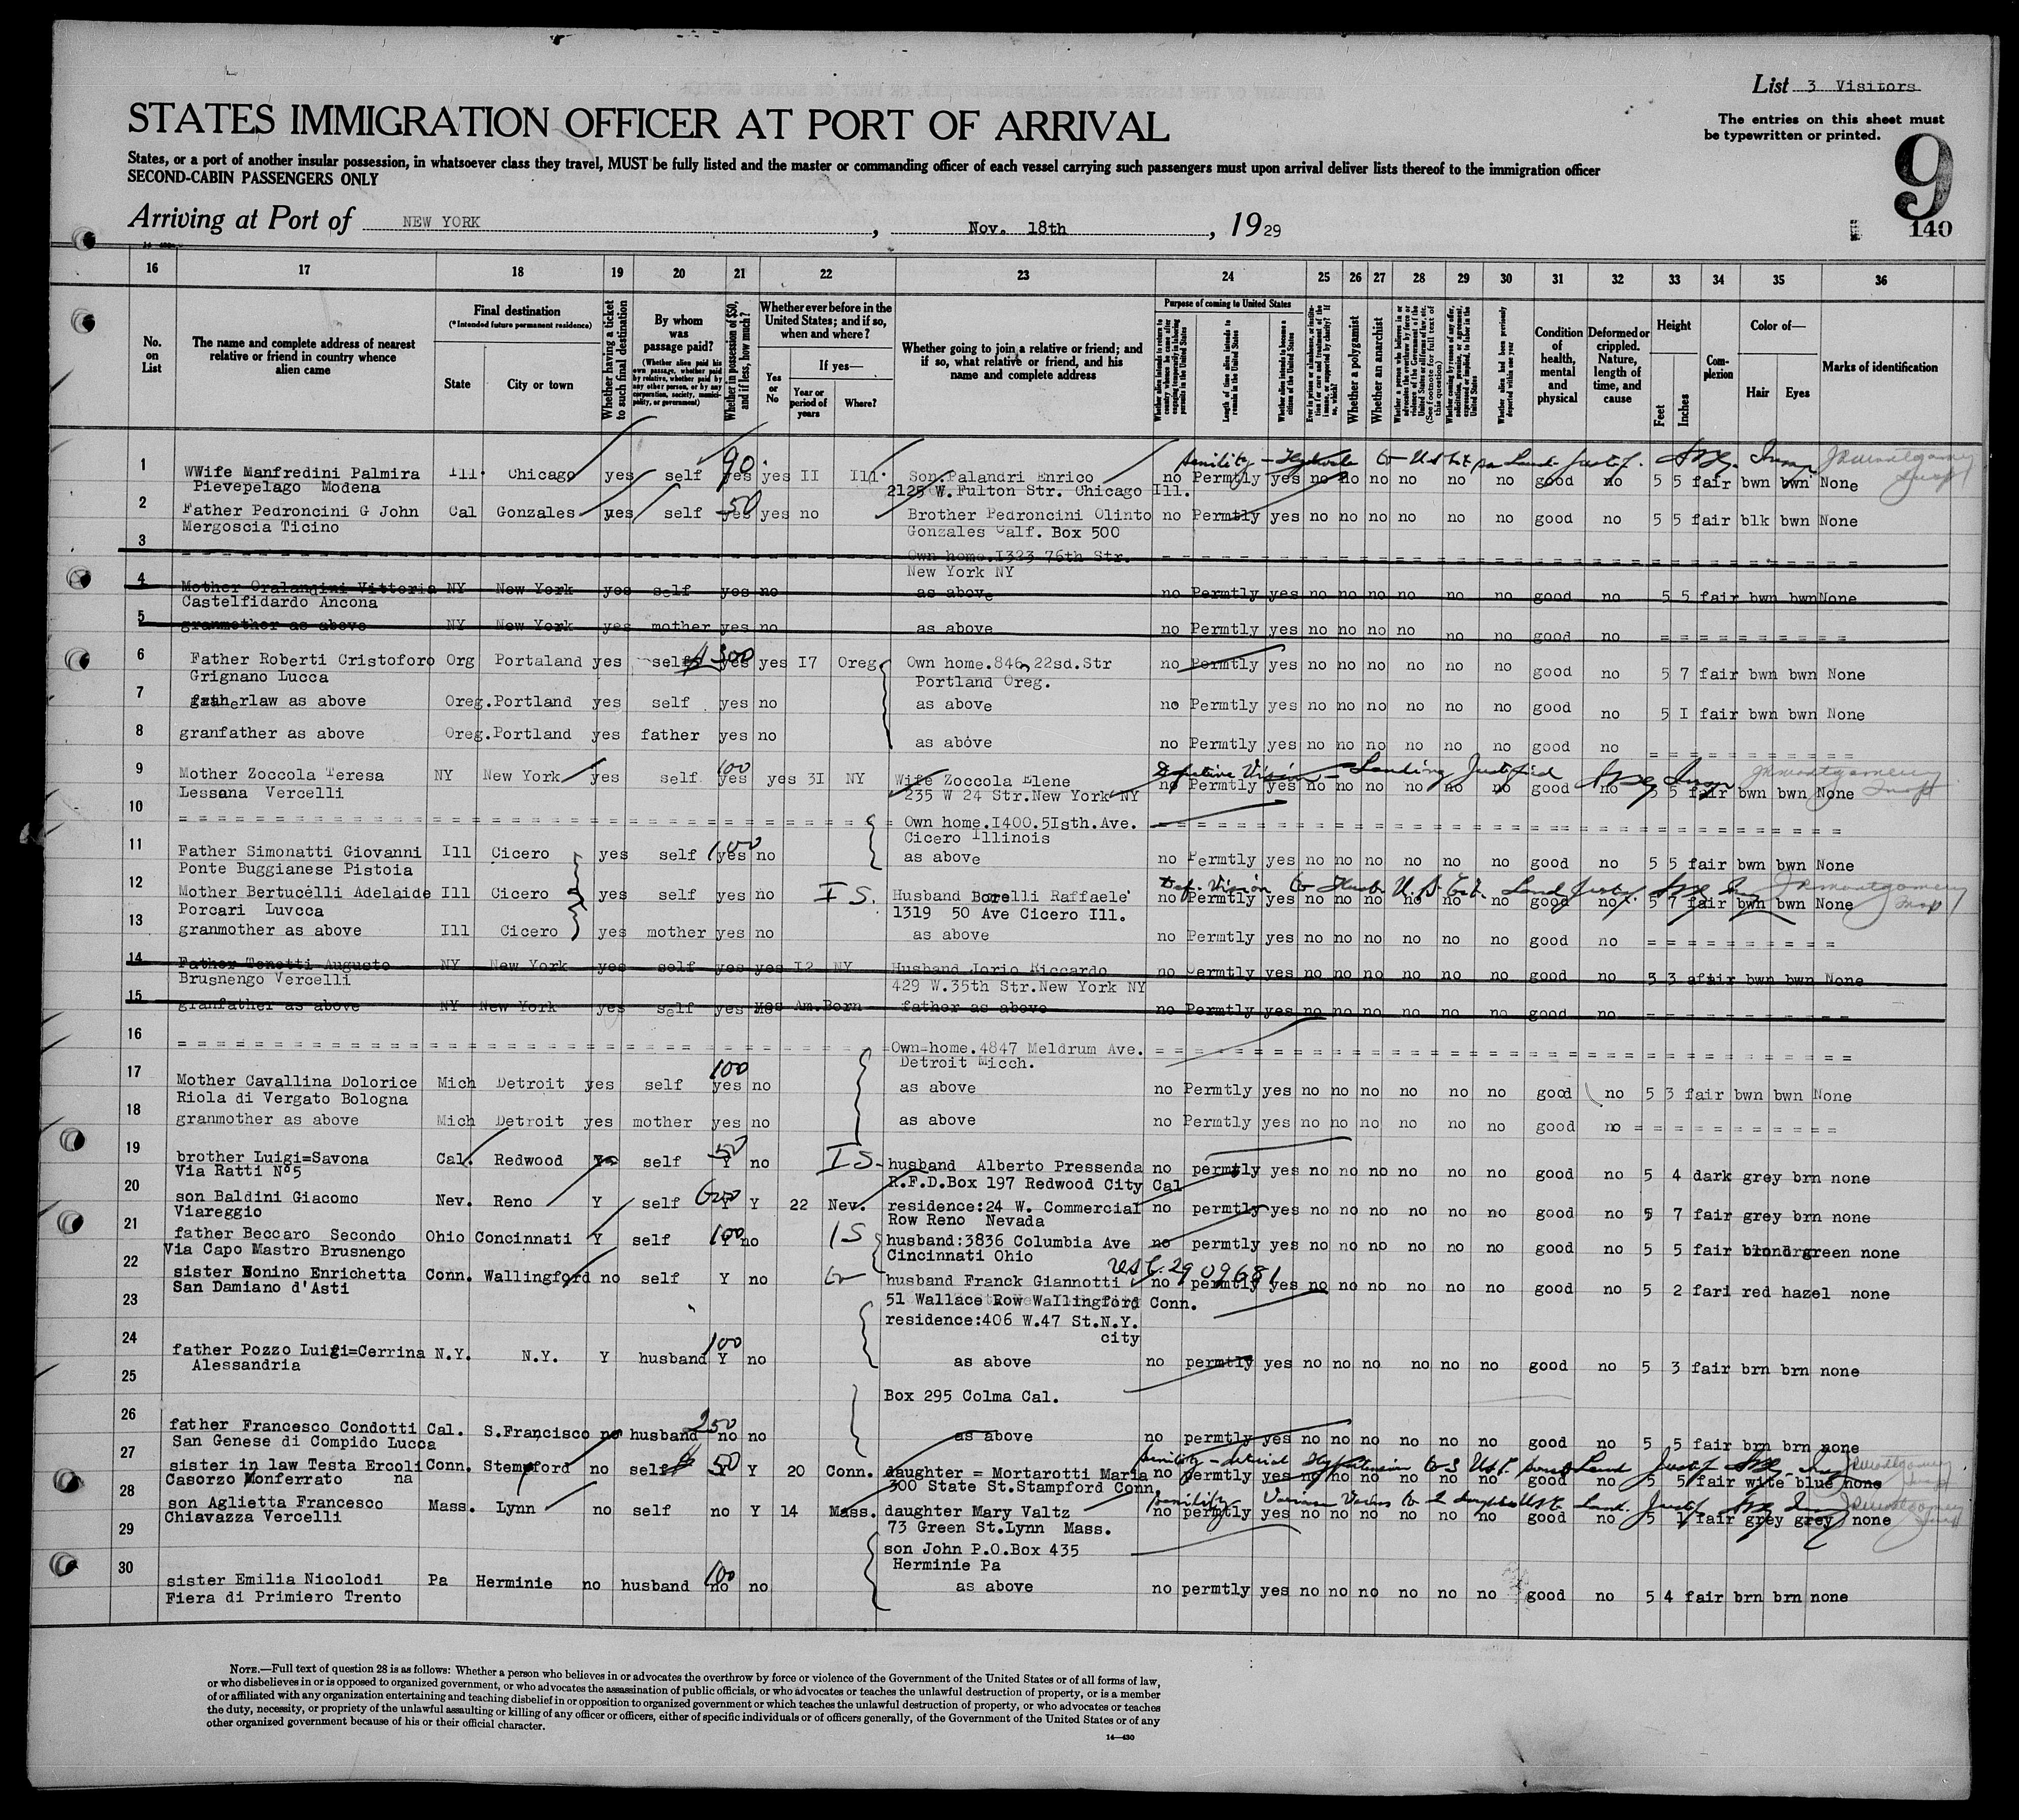 List 3 Visitors
The entries on this sheet must
be typewritten or printed.
9
140
STATES IMMIGRATION OFFICER AT PORT OF ARRIVAL
States, or a port of another insular possession, in whatsoever class they travel, MUST be fully listed and the master or commanding officer of each vessel carrying such passengers must upon arrival deliver lists thereof to the immigration officer
SECOND-CABIN PASSENGERS ONLY
Arriving at Port of NEW YORK, Nov. 18th, 1929
16 17 18 19 20 21 22 23 24 25 26 27 28 29 30 31 32 33 34 35 36
No. on List
The name and complete address of nearest relative or friend in country whence alien came
Final destination
(*Intended future permanent residence)
State
City or town
Whether having a ticket to such final destination
By whom was passage paid?
(Whether alien paid his own passage, whether paid by relative, whether paid by any other person, or by any corporation, society, municipality, or government)
Whether in possession of $50, and if less, how much?
Whether ever before in the United States; and if so, when and where?
Yes or No
If yes—
Year or period of years
Where?
Whether going to join a relative or friend; and if so, what relative or friend, and his name and complete address
Purpose of coming to United States
Length of time alien intends to remain in the United States
Whether alien intends to become a citizen of the United States
Whether a polygamist
Whether an anarchist
Condition of health, mental and physical
Deformed or crippled. Nature, length of time, and cause
Height
Feet
Inches
Complexion
Color of—
Hair
Eyes
Marks of identification
1 WWife Manfredini Palmira Ill. Chicago yes self 90 yes yes II Ill. Son.Palandri Enrico no Permtly yes no no no no no no good no 5 5 fair bwn bwn None
Pievepelago Modena 2125 W.Fulton Str. Chicago Ill.
2 Father Pedroncini G John Cal Gonzales yes self 50 yes yes no Brother Pedroncini Olinto no Permtly yes no no no no no no good no 5 5 fair blk bwn None
Mergoscia Ticino Gonzales Calf. Box 500
3 Own home.I323 76th Str.
New York NY
4 Mother Oralandini Vittoria NY New York yes self yes no as above no Permtly yes no no no no no no good no 5 5 fair bwn bwn None
Castelfidardo Ancona
5 granmother as above NY New York yes mother yes no as above no Permtly yes no no no no no no good no
6 Father Roberti Cristoforo Org Portaland yes self 300 yes yes I7 Oreg Own home.846, 22sd.Str no Permtly yes no no no no no no good no 5 7 fair bwn bwn None
Grignano Lucca Portland Oreg.
7 fatherlaw as above Oreg.Portland yes self yes no as above no Permtly yes no no no no no no good no 5 I fair bwn bwn None
8 granfather as above Oreg.Portland yes father yes no as above no Permtly yes no no no no no no good no
9 Mother Zoccola Teresa NY New York yes self 100 yes yes 3I NY Wife Zoccola Elene no Permtly yes no no no no no no good no 5 5 fair bwn bwn None
Defective Vision - Landing Justified
Lessana Vercelli 235 W 24 Str.New York NY
10 Own home.I400.5Isth.Ave.
Cicero Illinois
11 Father Simonatti Giovanni Ill Cicero yes self 100 yes no as above no Permtly yes no no no no no no good no 5 5 fair bwn bwn None
Ponte Buggianese Pistoia
12 Mother Bertucelli Adelaide Ill Cicero yes self yes no I S. Husband Borelli Raffaele no Permtly yes no no no no no no good no 5 7 fair bwn bwn None
Porcari Luvcca 1319 50 Ave Cicero Ill.
13 granmother as above Ill Cicero yes mother yes no as above no Permtly yes no no no no no no good no
14 Father Tonetti Augusto NY New York yes self yes yes I2 NY Husband Jorio Riccardo no Permtly yes no no no no no no good no 5 3 bwn bwn None
Brusnengo Vercelli 429 W.35th Str.New York NY
15 granfather as above NY New York yes self yes yes Am.Born father as above no Permtly yes no no no no no no good no
16 Own=home.4847 Meldrum Ave.
Detroit Micch.
17 Mother Cavallina Dolorice Mich Detroit yes self 100 yes no as above no Permtly yes no no no no no no good no 5 3 fair bwn bwn None
Riola di Vergato Bologna
18 granmother as above Mich Detroit yes mother yes no as above no Permtly yes no no no no no no good no
19 brother Luigi=Savona Cal. Redwood self 50 Y no I S. husband Alberto Pressenda no permtly yes no no no no no no good no 5 4 dark grey brn none
Via Ratti N°5 R.F.D.Box 197 Redwood City Cal
20 son Baldini Giacomo Nev. Reno Y self 600 Y Y 22 Nev. residence:24 W. Commercial no permtly yes no no no no no no good no 5 7 fair grey brn none
Viareggio Row Reno Nevada
21 father Beccaro Secondo Ohio Concinnati Y self 100 Y no I S husband:3836 Columbia Ave no permtly yes no no no no no no good no 5 5 fair green none
Via Capo Mastro Brusnengo Cincinnati Ohio
22 sister Bonino Enrichetta Conn. Wallingford no self Y no husband Franck Giannotti no permtly yes no no no no no no good no 5 2 fari red hazel none
San Damiano d'Asti 51 Wallace Row Wallingford Conn.
23 residence:406 W.47 St.N.Y.
city
24 father Pozzo Luigi=Cerrina N.Y. N.Y. Y husband 100 Y no as above no permtly yes no no no no no no good no 5 3 fair brn brn none
Alessandria
25 Box 295 Colma Cal.
26 father Francesco Condotti Cal. S.Francisco no husband 250 no no as above no permtly yes no no no no no no good no 5 5 fair brn brn none
San Genese di Compido Lucca
27 sister in law Testa Ercoli Conn. Stempford no self 50 Y 20 Conn. daughter = Mortarotti Maria no permtly yes no no no no no no good no 5 5 fair wite blue none
Casorzo Monferrato na 300 State St.Stampford Conn.
28 son Aglietta Francesco Mass. Lynn no self no Y 14 Mass. daughter Mary Valtz no permtly yes no no no no no no good no 5 1 fair grey grey none
Chiavazza Vercelli 73 Green St.Lynn Mass.
29 son John P.O.Box 435
Herminie Pa
30 sister Emilia Nicolodi Pa Herminie no husband 100 no no as above no permtly yes no no no no no no good no 5 4 fair brn brn none
Fiera di Primiero Trento
NOTE.—Full text of question 28 is as follows: Whether a person who believes in or advocates the overthrow by force or violence of the Government of the United States or of all forms of law,
or who disbelieves in or is opposed to organized government, or who advocates the assassination of public officials, or who advocates or teaches the unlawful destruction of property, or is a member
of or affiliated with any organization entertaining and teaching disbelief in or opposition to organized government or which teaches the unlawful destruction of property, or who advocates or teaches
the duty, necessity, or propriety of the unlawful assaulting or killing of any officer or officers, either of specific individuals or of officers generally, of the Government of the United States or of any
other organized government because of his or their official character.
14—430